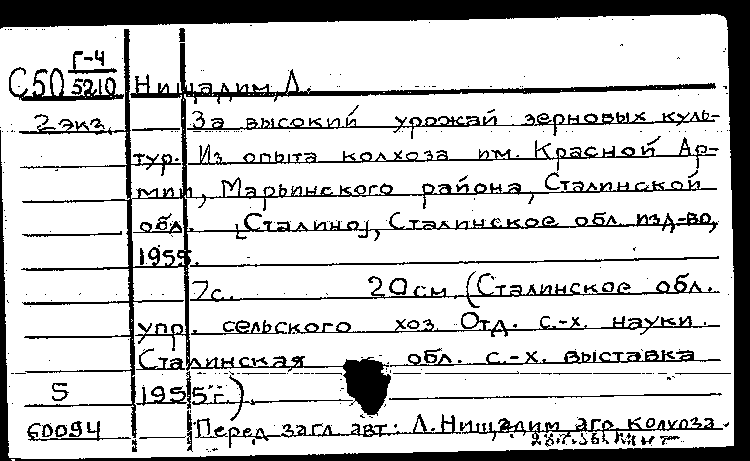 Г-4
С50 5210 Нищадим, Л.
2 экз. За высокий урожай зерновых куль-
тур. Из опыта колхоза им. Красной Ар-
мии, Марьинского района, Сталинской
обл. [Сталино], Сталинское обл. изд-во,
1955.
7с. 20см (Сталинское обл.
упр. сельского хоз. Отд. с.-х. науки.
Сталинская обл. с.-х. выставка
5 1955г.).
60094 Перед загл. авт: Л. Нищадим агр. колхоза.